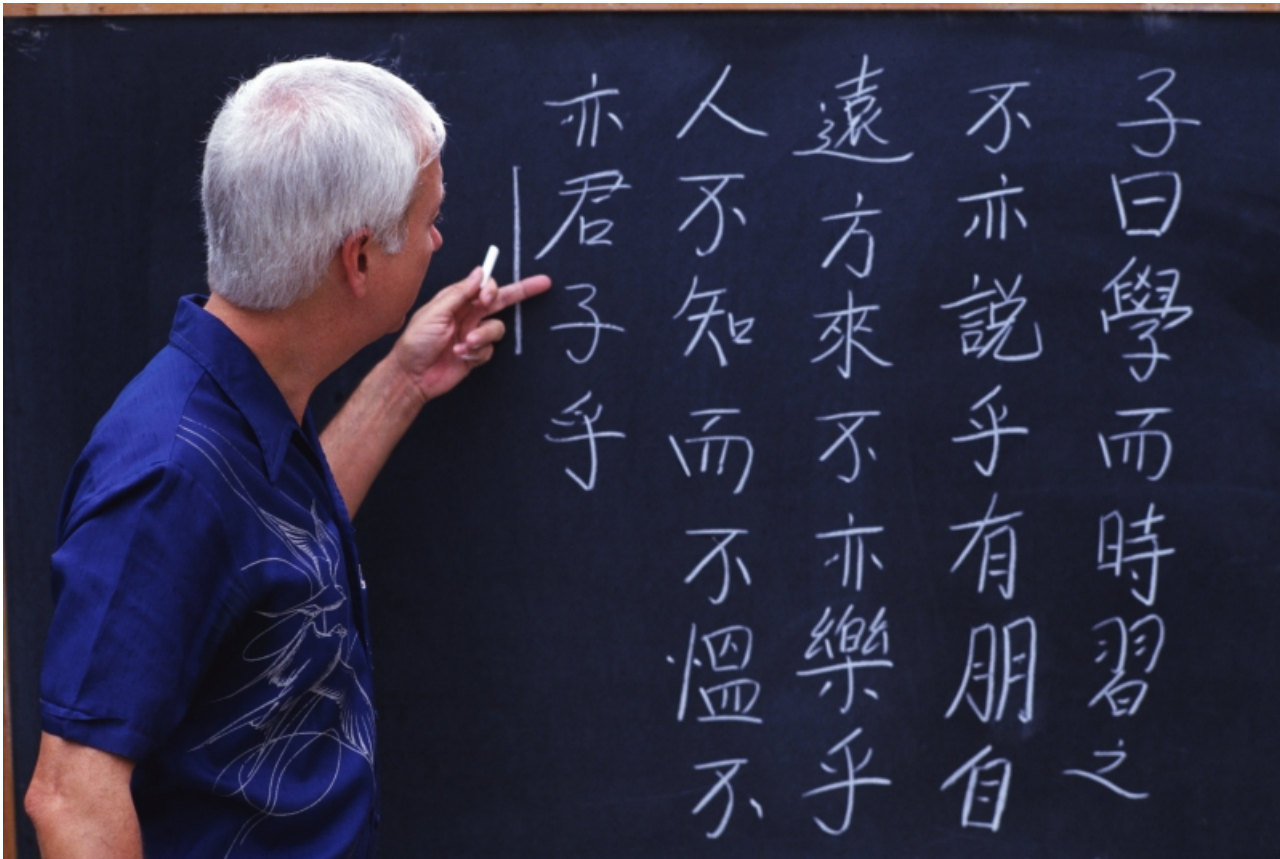 子曰學而時習之
不亦説乎有朋自
遠方來不亦樂乎
人不知而不愠不
亦君子乎